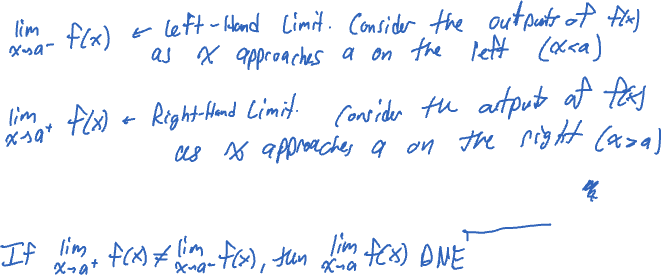 lim x→a⁻ f(x) ← Left-Hand Limit. Consider the outputs of f(x)
as x approaches a on the left (x<a)
lim x→a⁺ f(x) ← Right-Hand Limit. Consider the outputs of f(x)
as x approaches a on the right (x>a)
If lim x→a⁺ f(x) ≠ lim x→a⁻ f(x), then lim x→a f(x) DNE